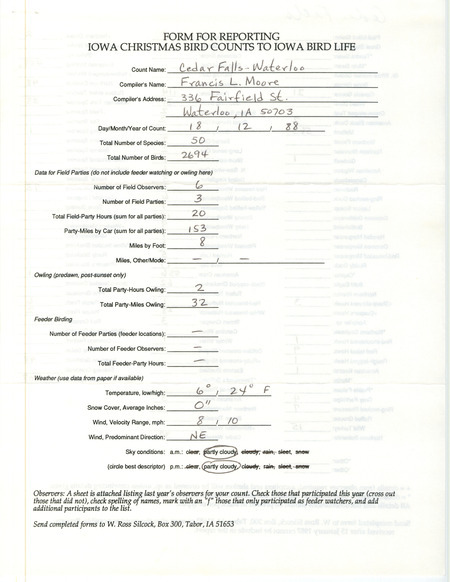 FORM FOR REPORTING
IOWA CHRISTMAS BIRD COUNTS TO IOWA BIRD LIFE
Count Name: Cedar Falls-Waterloo
Compiler's Name: Francis L. Moore
Compiler's Address: 336 Fairfield St.
Waterloo, IA 50703
Day/Month/Year of Count: 18 , 12 , 88
Total Number of Species: 50
Total Number of Birds: 2694
Data for Field Parties (do not include feeder watching or owling here)
Number of Field Observers: 6
Number of Field Parties: 3
Total Field-Party Hours (sum for all parties): 20
Party-Miles by Car (sum for all parties): 153
Miles by Foot: 8
Miles, Other/Mode: — , —
Owling (predawn, post-sunset only)
Total Party-Hours Owling: 2
Total Party-Miles Owling: 32
Feeder Birding
Number of Feeder Parties (feeder locations): —
Number of Feeder Observers: —
Total Feeder-Party Hours: —
Weather (use data from paper if available)
Temperature, low/high: 6° , 24° F
Snow Cover, Average Inches: 0"
Wind, Velocity Range, mph: 8 , 10
Wind, Predominant Direction: NE
Sky conditions: a.m.: clear, partly cloudy, cloudy, rain, sleet, snow
(circle best descriptor) p.m.: clear, partly cloudy, cloudy, rain, sleet, snow
Observers: A sheet is attached listing last year's observers for your count. Check those that participated this year (cross out
those that did not), check spelling of names, mark with an "f" those that only participated as feeder watchers, and add
additional participants to the list.
Send completed forms to W. Ross Silcock, Box 300, Tabor, IA 51653